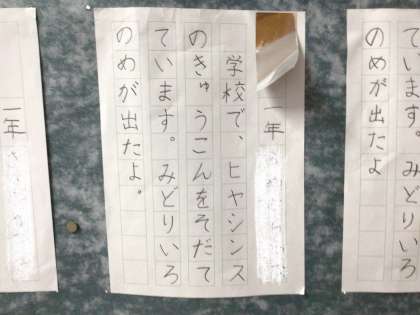 一年
学校で、ヒヤシンス
のきゅうこんをそだて
ています。みどりいろ
のめが出たよ。
ています。みどりいろ
のめが出たよ
一年